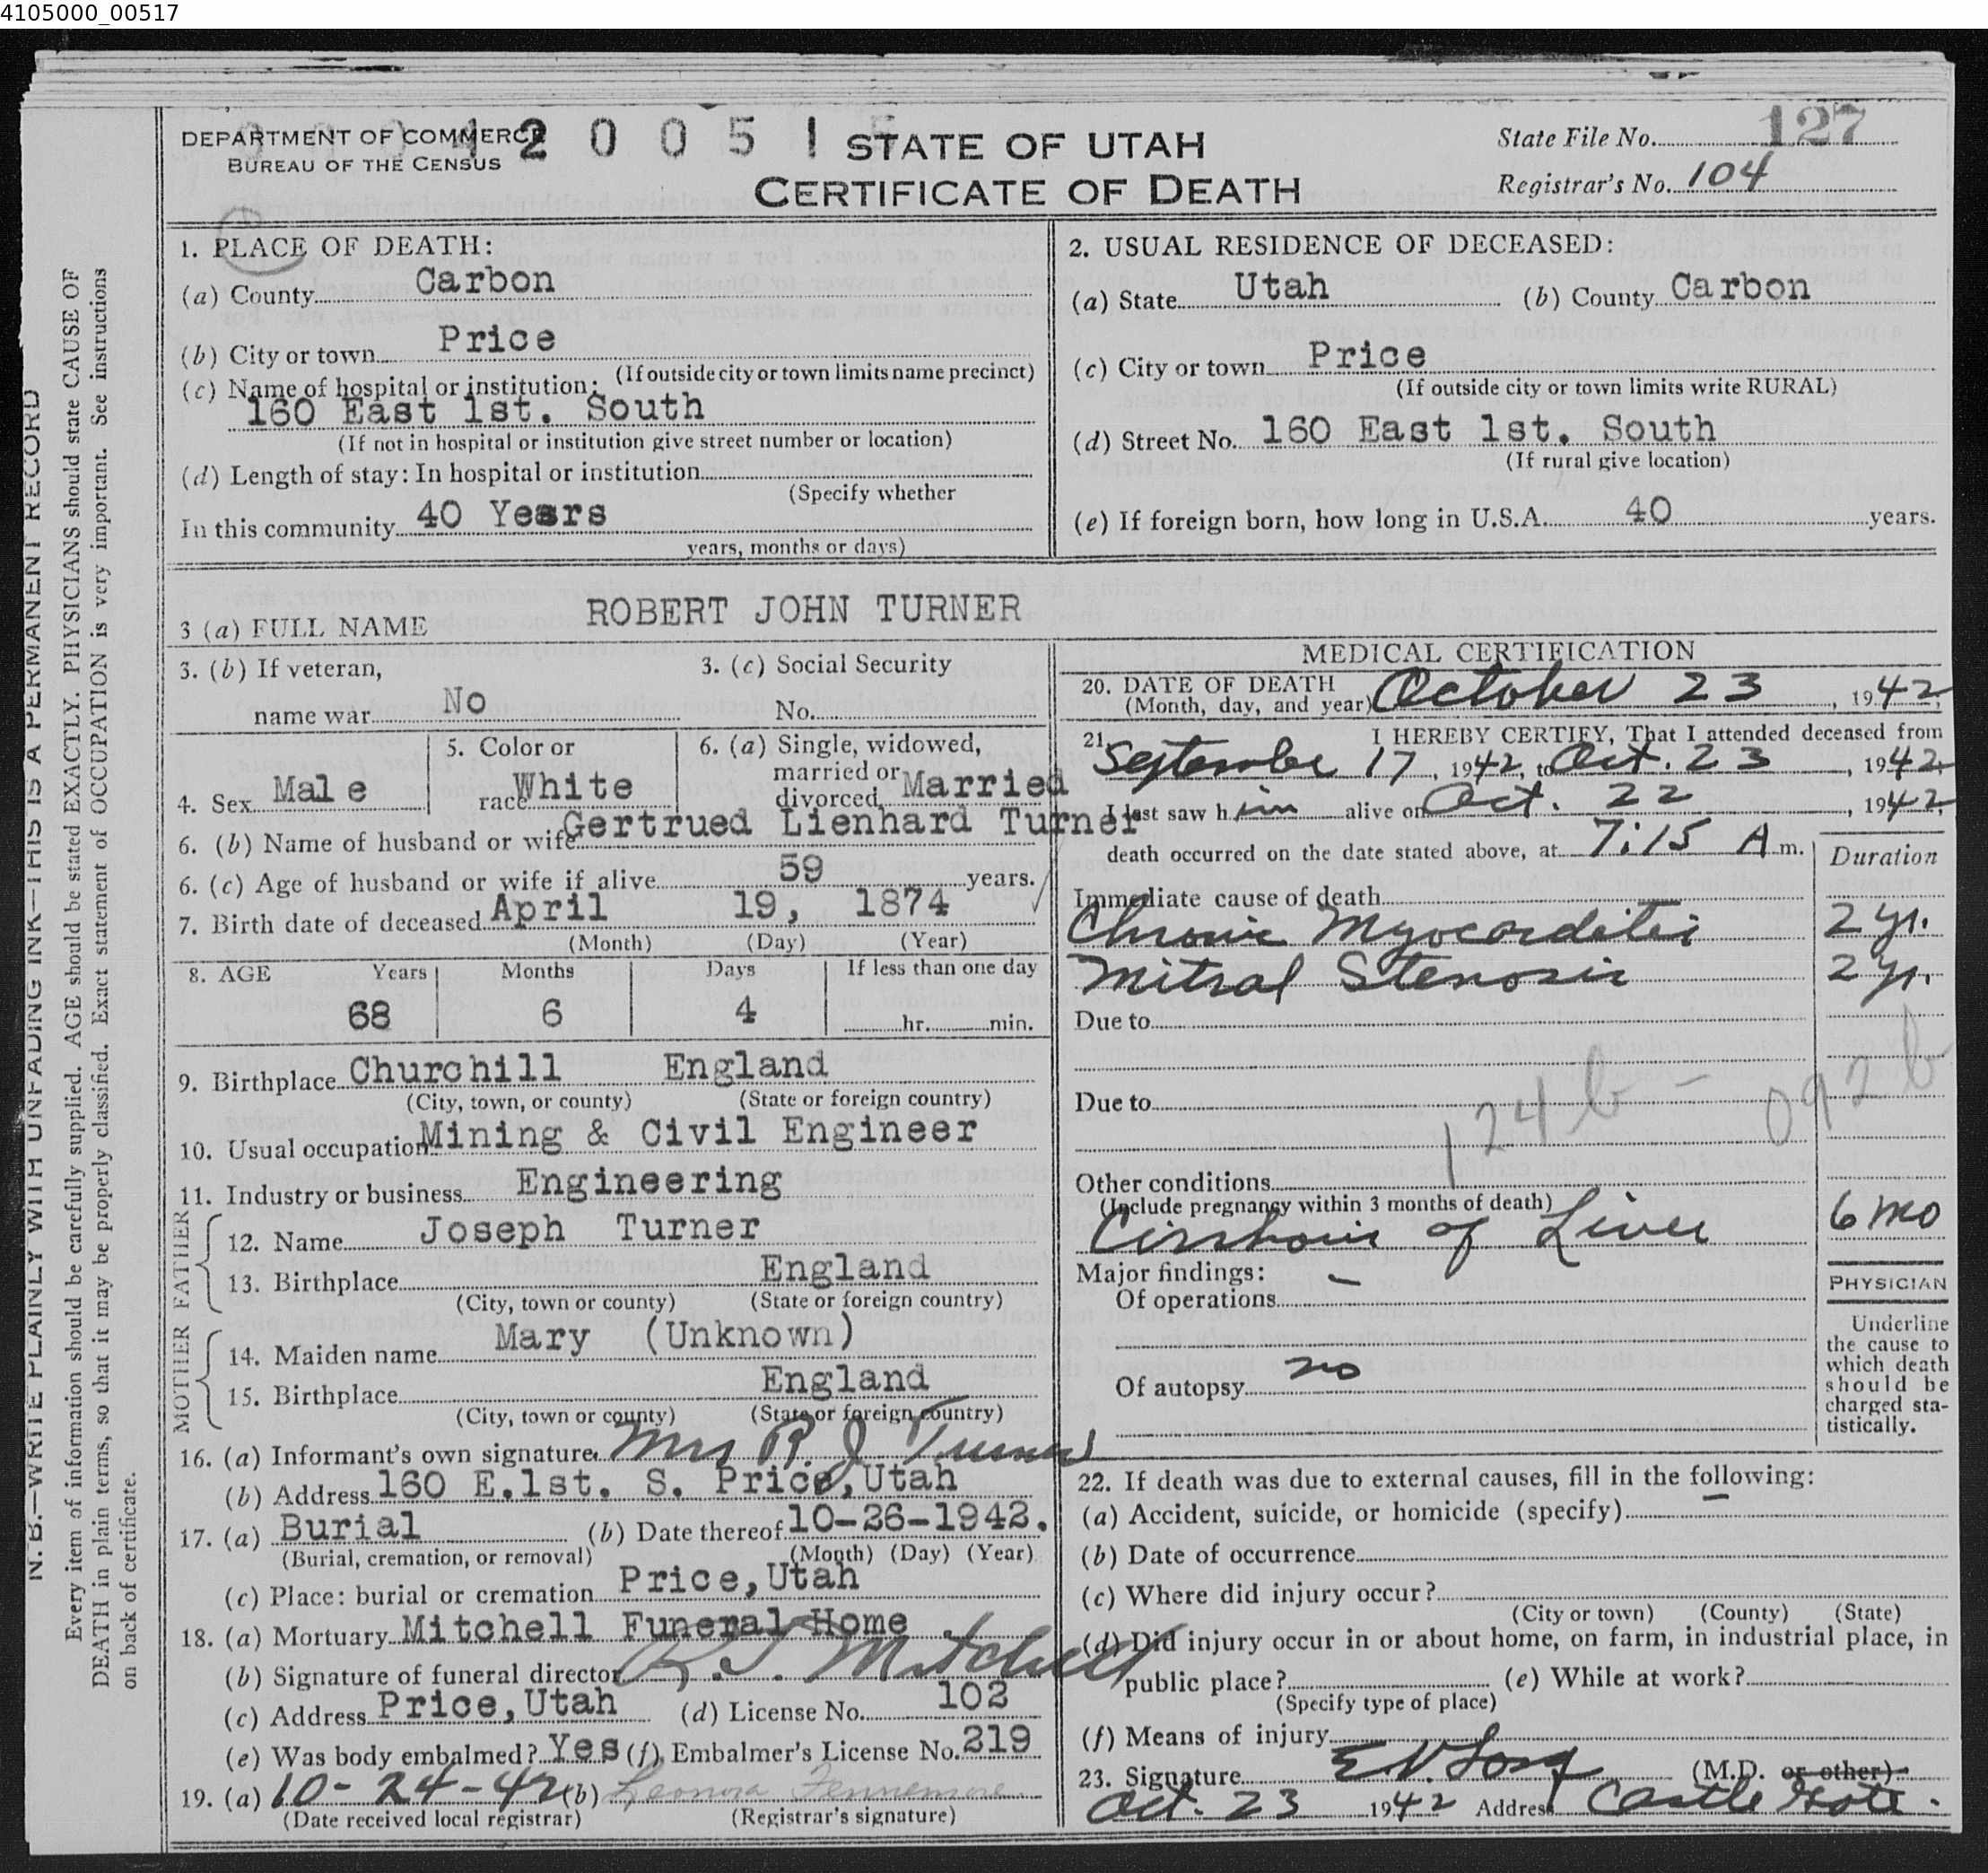 4105000_00517
DEPARTMENT OF COMMERCE
BUREAU OF THE CENSUS
2 0 0 5 1
STATE OF UTAH
CERTIFICATE OF DEATH
State File No. 127
Registrar's No. 104
N.B.—WRITE PLAINLY WITH UNFADING INK—THIS IS A PERMANENT RECORD
Every item of information should be carefully supplied. AGE should be stated EXACTLY. PHYSICIANS should state CAUSE OF
DEATH in plain terms, so that it may be properly classified. Exact statement of OCCUPATION is very important. See instructions
on back of certificate.
1. PLACE OF DEATH:
(a) County Carbon
(b) City or town Price
(If outside city or town limits name precinct)
(c) Name of hospital or institution:
160 East 1st. South
(If not in hospital or institution give street number or location)
(d) Length of stay: In hospital or institution
(Specify whether
In this community 40 Years
years, months or days)
2. USUAL RESIDENCE OF DECEASED:
(a) State Utah (b) County Carbon
(c) City or town Price
(If outside city or town limits write RURAL)
(d) Street No. 160 East 1st. South
(If rural give location)
(e) If foreign born, how long in U.S.A. 40 years.
3 (a) FULL NAME ROBERT JOHN TURNER
3. (b) If veteran,
name war No
3. (c) Social Security
No.
4. Sex Male
5. Color or
race White
6. (a) Single, widowed,
married or
divorced Married
6. (b) Name of husband or wife Gertrued Lienhard Turner
6. (c) Age of husband or wife if alive 59 years.
7. Birth date of deceased April 19, 1874
(Month) (Day) (Year)
8. AGE Years Months Days If less than one day
68 6 4 hr. min.
9. Birthplace Churchill England
(City, town, or county) (State or foreign country)
10. Usual occupation Mining & Civil Engineer
11. Industry or business Engineering
FATHER
12. Name Joseph Turner
13. Birthplace England
(City, town or county) (State or foreign country)
MOTHER
14. Maiden name Mary (Unknown)
15. Birthplace England
(City, town or county) (State or foreign country)
16. (a) Informant's own signature Mrs R. J Turner
(b) Address 160 E.1st. S. Price,Utah
17. (a) Burial (b) Date thereof 10-26-1942.
(Burial, cremation, or removal) (Month) (Day) (Year)
(c) Place: burial or cremation Price,Utah
18. (a) Mortuary Mitchell Funeral Home
(b) Signature of funeral director Mitchell
(c) Address Price,Utah (d) License No. 102
(e) Was body embalmed? Yes (f) Embalmer's License No. 219
19. (a) 10-24-42 (b) Leonora Fennemore
(Date received local registrar) (Registrar's signature)
MEDICAL CERTIFICATION
20. DATE OF DEATH
(Month, day, and year) October 23, 1942.
21. I HEREBY CERTIFY, That I attended deceased from
September 17, 1942, to Oct. 23, 1942.
I last saw him alive on Oct. 22, 1942,
death occurred on the date stated above, at 7:15 A m.
Duration
Immediate cause of death
Chronic Myocarditis 2 yr.
Mitral Stenosis 2 yr.
Due to
Due to
124 b - 092 b
Other conditions
(Include pregnancy within 3 months of death)
Cirrhosis of Liver 6 mo
Major findings:
Of operations —
Of autopsy no
PHYSICIAN
Underline
the cause to
which death
should be
charged sta-
tistically.
22. If death was due to external causes, fill in the following:
(a) Accident, suicide, or homicide (specify) —
(b) Date of occurrence
(c) Where did injury occur?
(City or town) (County) (State)
(d) Did injury occur in or about home, on farm, in industrial place, in
public place? (e) While at work?
(Specify type of place)
(f) Means of injury
23. Signature E V. Long (M.D. or other)
Oct. 23 1942 Address Castle Gate.